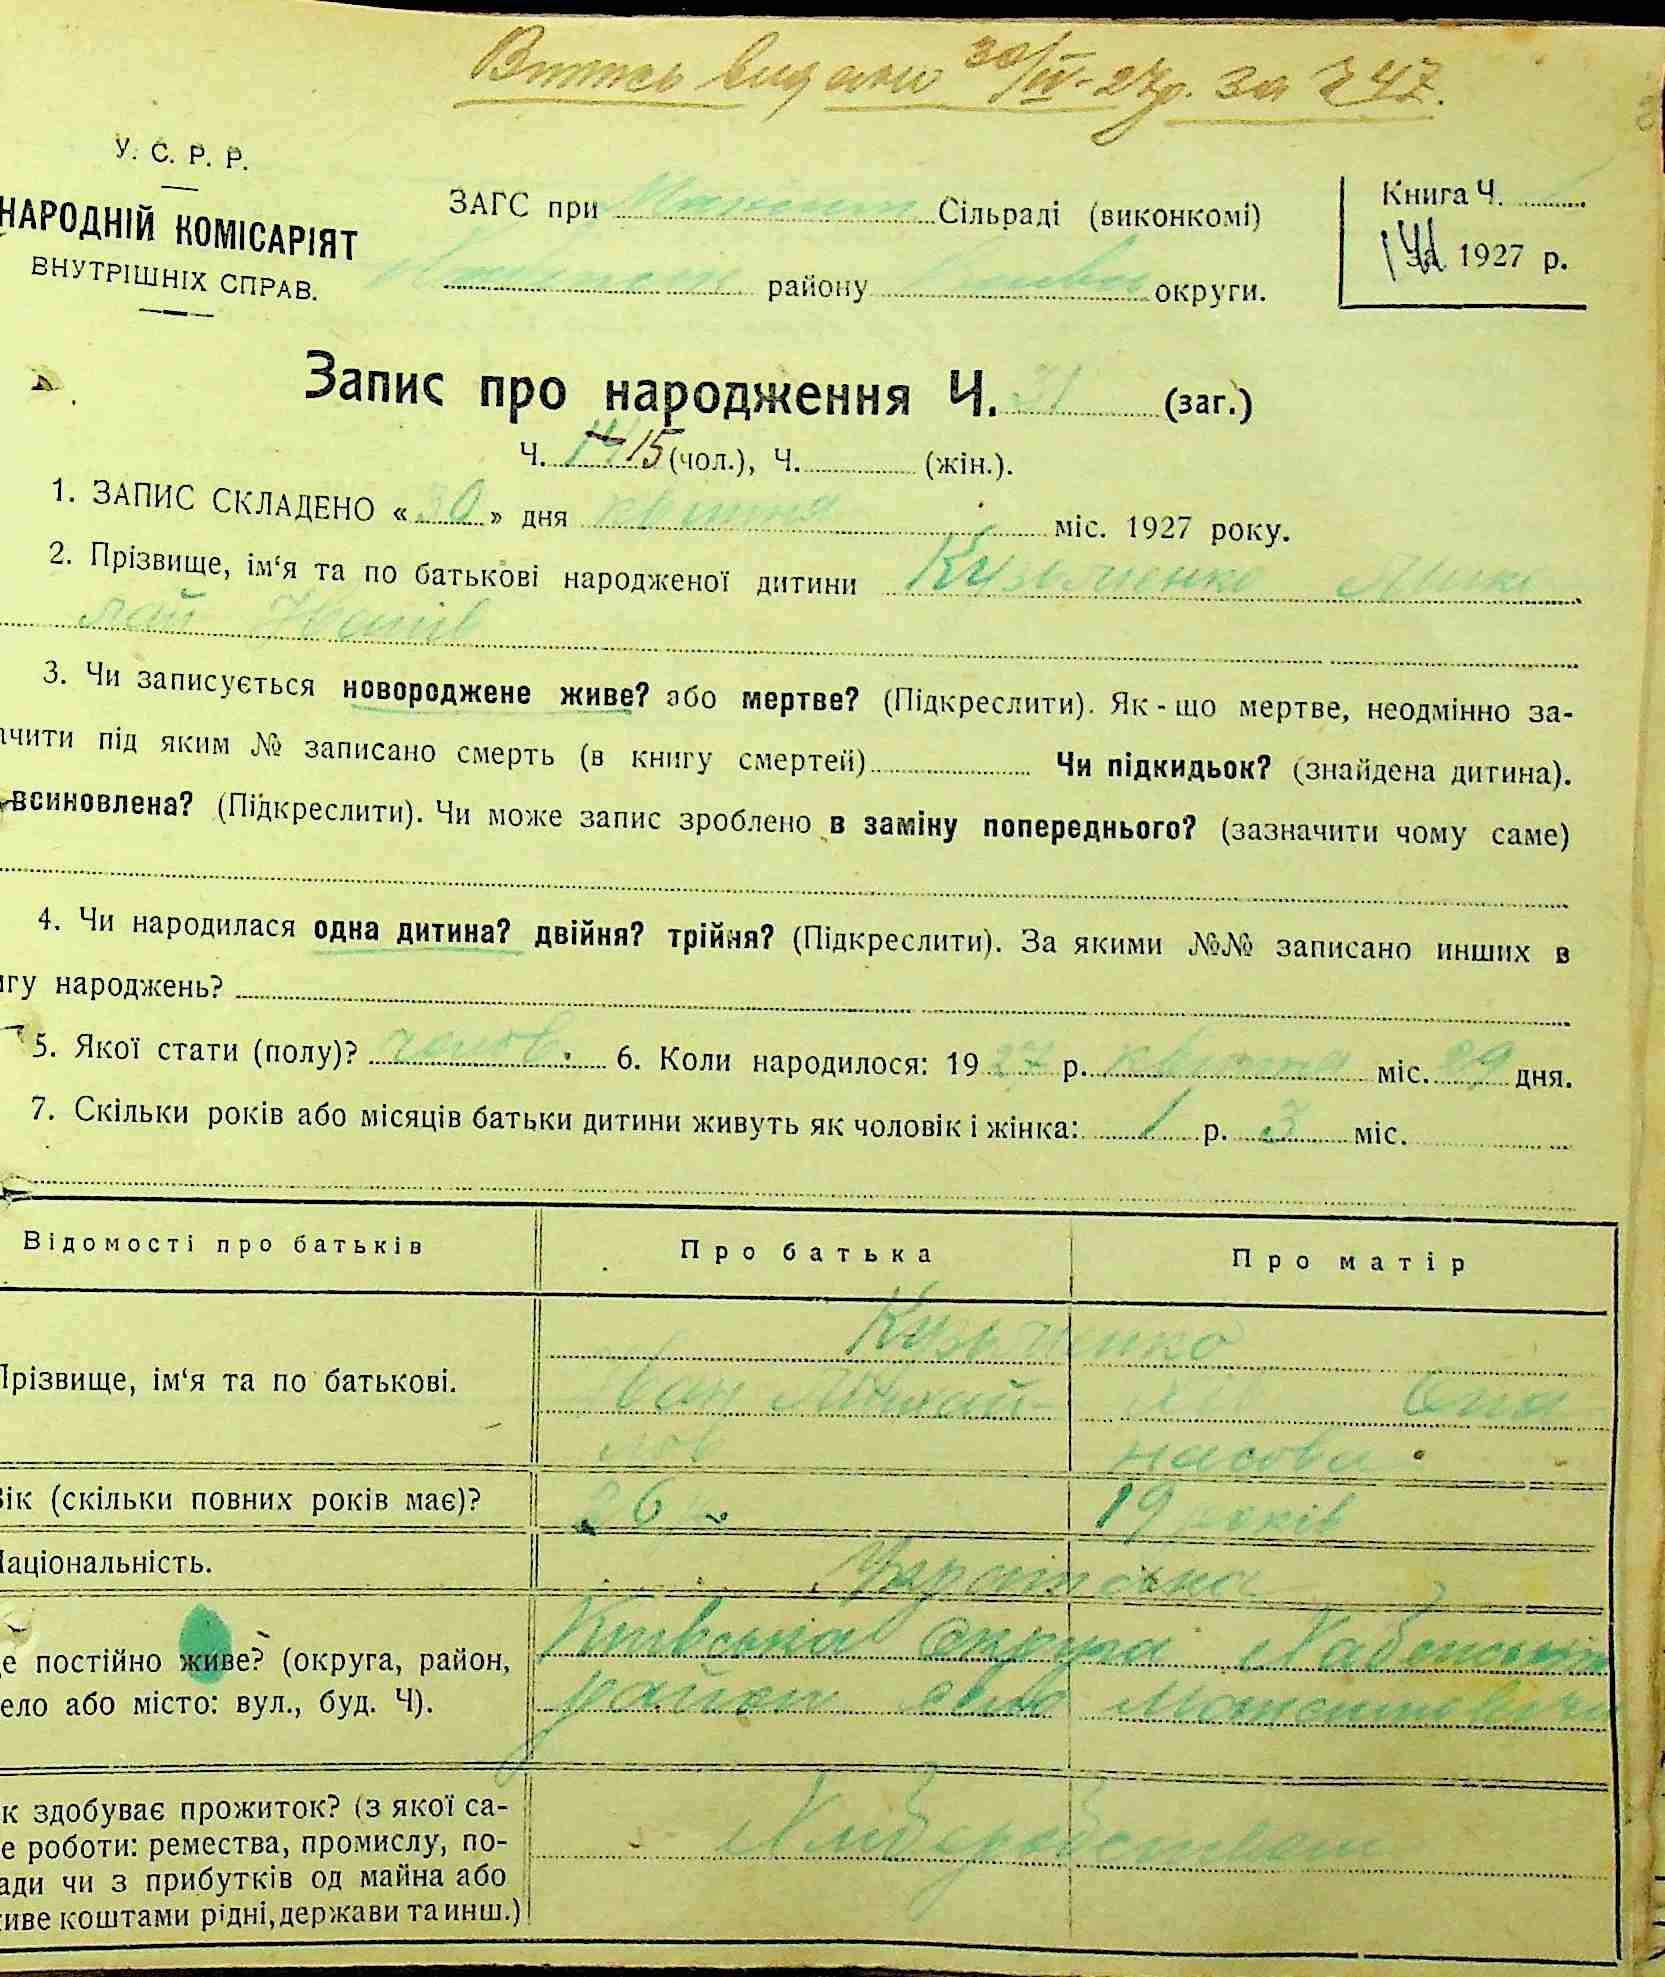 Витяг видано 30/IV-27р. за № 47.
У. С. Р. Р.
НАРОДНІЙ КОМІСАРІЯТ
ВНУТРІШНІХ СПРАВ.
ЗАГС при Сільраді (виконкомі)
району округи.
Книга Ч.
1927 р.
Запис про народження Ч. 31 (заг.)
Ч. 14 15 (чол.), Ч. (жін.).
1. ЗАПИС СКЛАДЕНО « 30 » дня квітня міс. 1927 року.
2. Прізвище, ім‘я та по батькові народженої дитини Кузьменко Мико
лай Іванів
3. Чи записується новороджене живе? або мертве? (Підкреслити). Як-що мертве, неодмінно за-
ачити під яким № записано смерть (в книгу смертей) Чи підкидьок? (знайдена дитина).
всиновлена? (Підкреслити). Чи може запис зроблено в заміну попереднього? (зазначити чому саме)
4. Чи народилася одна дитина? двійня? трійня? (Підкреслити). За якими №№ записано инших в
игу народжень?
5. Якої стати (полу)? чолов. 6. Коли народилося: 1927 р. квітня міс. 29 дня.
7. Скільки років або місяців батьки дитини живуть як чоловік і жінка: 1 р. 3 міс.
Відомості про батьків Про батька Про матір
Прізвище, ім‘я та по батькові.
Кузьменко
Іван Михай- Опа
лов насова
Вік (скільки повних років має)? 26 р. 19 років
Національність. Українська
де постійно живе? (округа, район,
село або місто: вул., буд. Ч).
Київська округа Хабенський
район село
Як здобуває прожиток? (з якої са-
ме роботи: ремества, промислу, по-
сади чи з прибутків од майна або
живе коштами рідні, держави та инш.)
Хліборобством